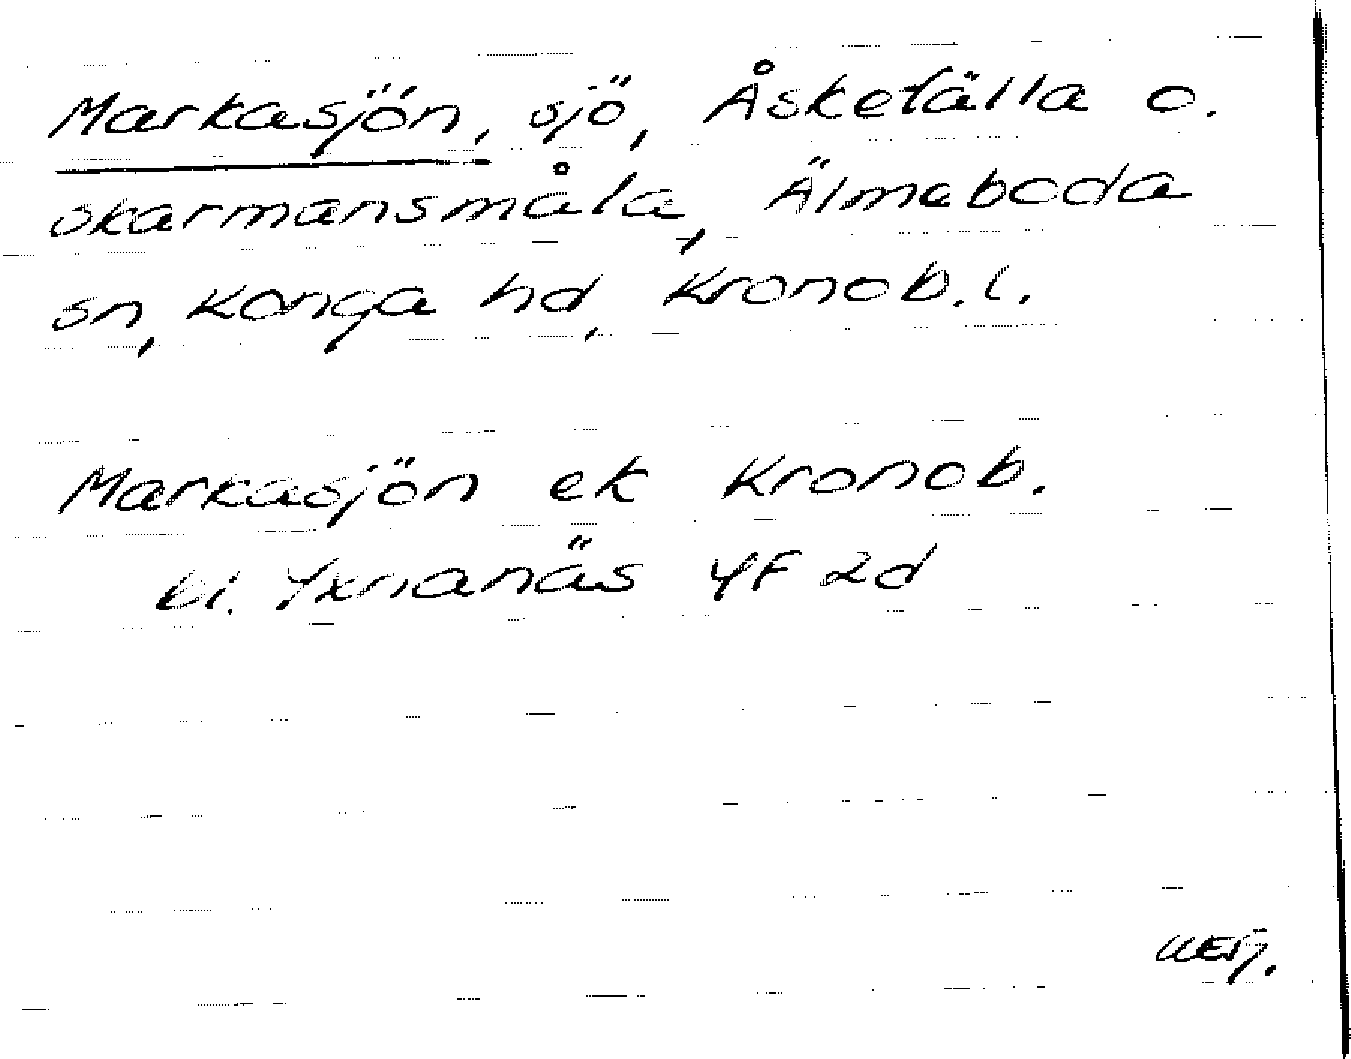 Markasjön, sjö, Åskefälla o.
skarmansmåla, Älmeboda
sn, Konga hd, Kronob. l.
Markasjön ek Kronob.
bl. Yxnanäs 4F 2d